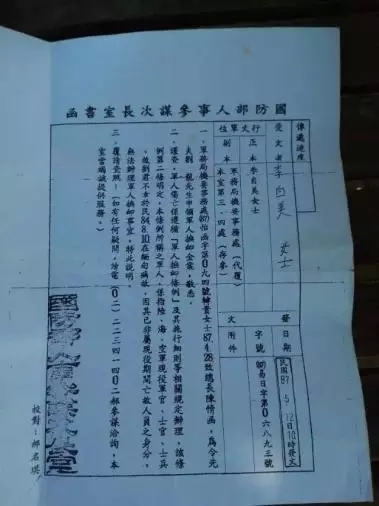 國防部人事參謀次長室書函
傳遞速度
受文者 李向美 女士
行文單位
正本 李向美女士
副本 軍務局機要事務處(代覆)
本室第三、四處(存參)
發文
日期 民國87.5.12日10時發文
字號 易日字第0六八九三號
附件
一、軍務局機要事務處(87)怡函字第0九四號轉貴女士87.4.28致總長陳情函,為令先
夫劉 龍先生申領軍人撫卹金案,敬悉。
二、謹查,軍人傷亡係遵循「軍人撫卹條例」及其施行細則等相關規定辦理,該條
例第二條明定,本條例所稱之軍人,係指陸、海、空軍現役軍官、士官、士兵
,故劉君不幸於民84.8.10在緬甸病故,因其已非屬現役期間亡故人員之身分,
無法辦理軍人撫卹事宜,特此說明。
三、覆請查照。(如有任何疑問,請電(0二)二三一四一四0二 參謀洽詢,本
室當竭誠提供服務。)
國防部人事參謀次長室
校對:郝名琪